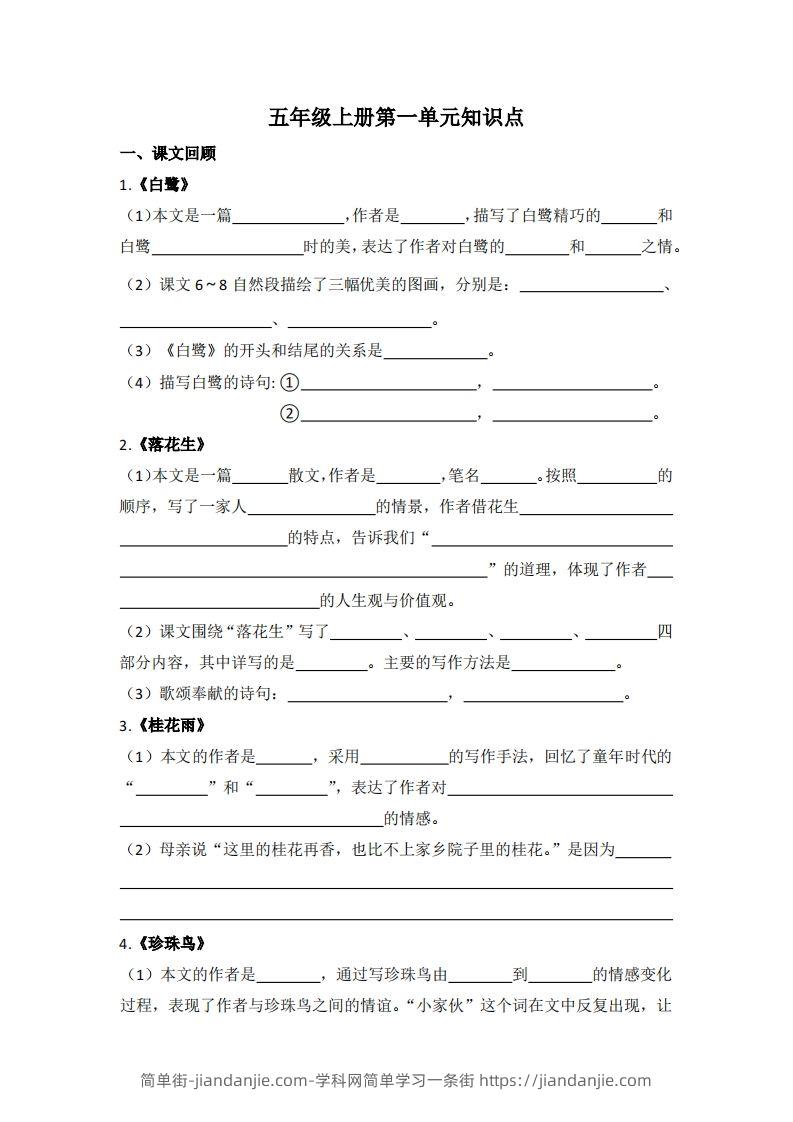 五年级上册第一单元知识点
一、课文回顾
1.《白鹭》
（1)本文是一篇______________,作者是________,描写了白鹭精巧的_______和
白鹭___________________时的美,表达了作者对白鹭的________和_______之情。
（2）课文 6～8 自然段描绘了三幅优美的图画，分别是：__________________、
___________________、__________________。
（3）《白鹭》的开头和结尾的关系是_____________。
（4）描写白鹭的诗句: ①______________________，____________________。
②______________________，____________________。
2.《落花生》
（1)本文是一篇_______散文,作者是________,笔名_______。按照__________的
顺序，写了一家人________________的情景，作者借花生___________________
_____________________的特点，告诉我们“______________________________
______________________________________________”的道理，体现了作者___
_________________________的人生观与价值观。
（2）课文围绕“落花生”写了_________、_________、_________、_________四
部分内容，其中详写的是_________。主要的写作方法是_____________。
（3）歌颂奉献的诗句：____________________，____________________。
3.《桂花雨》
（1）本文的作者是_______，采用___________的写作手法，回忆了童年时代的
“_________”和“_________”，表达了作者对____________________________
_________________________________的情感。
（2）母亲说“这里的桂花再香，也比不上家乡院子里的桂花。”是因为_______
_____________________________________________________________________
_____________________________________________________________________
4.《珍珠鸟》
（1）本文的作者是________，通过写珍珠鸟由________到________的情感变化
过程，表现了作者与珍珠鸟之间的情谊。“小家伙”这个词在文中反复出现，让
简单街-jiandanjie.com-学科网简单学习一条街 https://jiandanjie.com